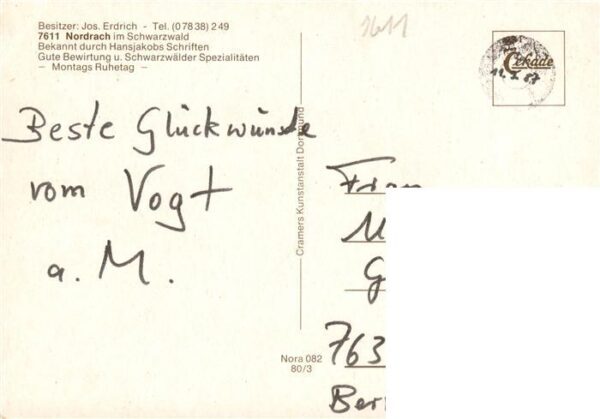 Besitzer: Jos. Erdrich - Tel. (07838) 249
7611 Nordrach im Schwarzwald
Bekannt durch Hansjakobs Schriften
Gute Bewirtung u. Schwarzwälder Spezialitäten
– Montags Ruhetag –
7611
Cekade
Beste Glückwünsche
vom Vogt
a. M.
Cramers Kunstanstalt Dortmund
Nora 082
80/3
Frau
M
G
763
Ber